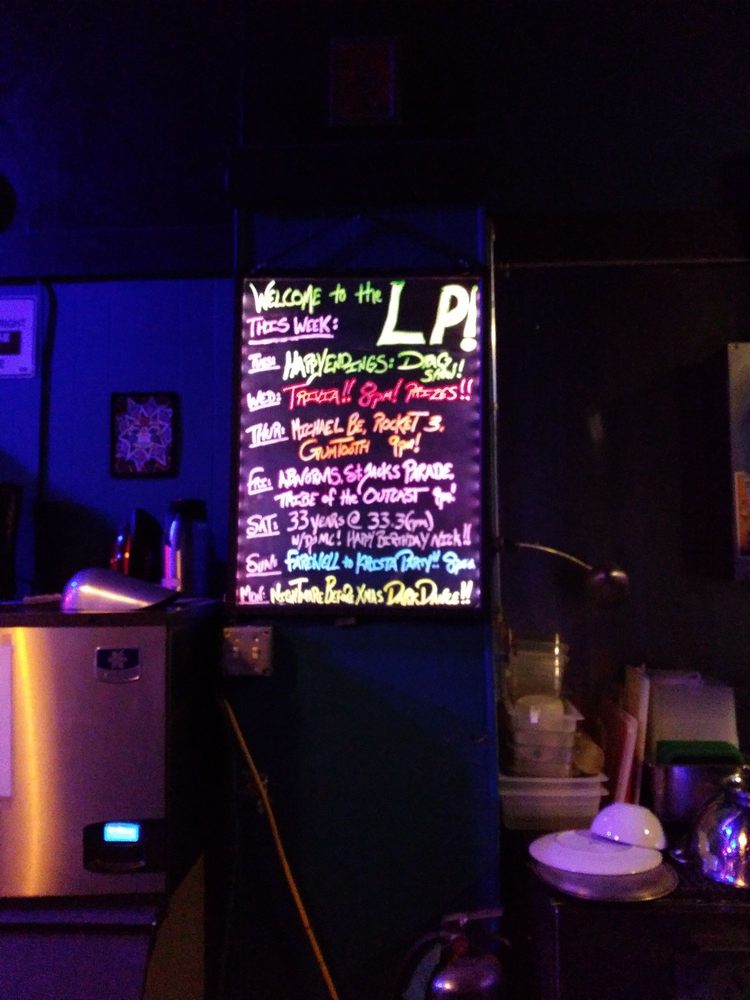 WELCOME to the LP!
THIS WEEK:
TUES: HAPPYENDINGS: DRAG SHOW!
WED: TRIVIA!! 8pm! PRIZES!!
THUR: MICHAEL BE, ROCKET 3,
GUMTOOTH 9pm!
FRI: ABNORMS, St JACKS PARADE,
TRIBE of the OUTCAST 9pm!
SAT: 33 YEARS @ 33.3(rpm)
W/DJ MC! HAPPY BIRTHDAY NICK!!
SUN: FAREWELL to KRISTA PARTY!! 8pm
MON: NIGHTMARE BEFORE XMAS DARK DANCE!!